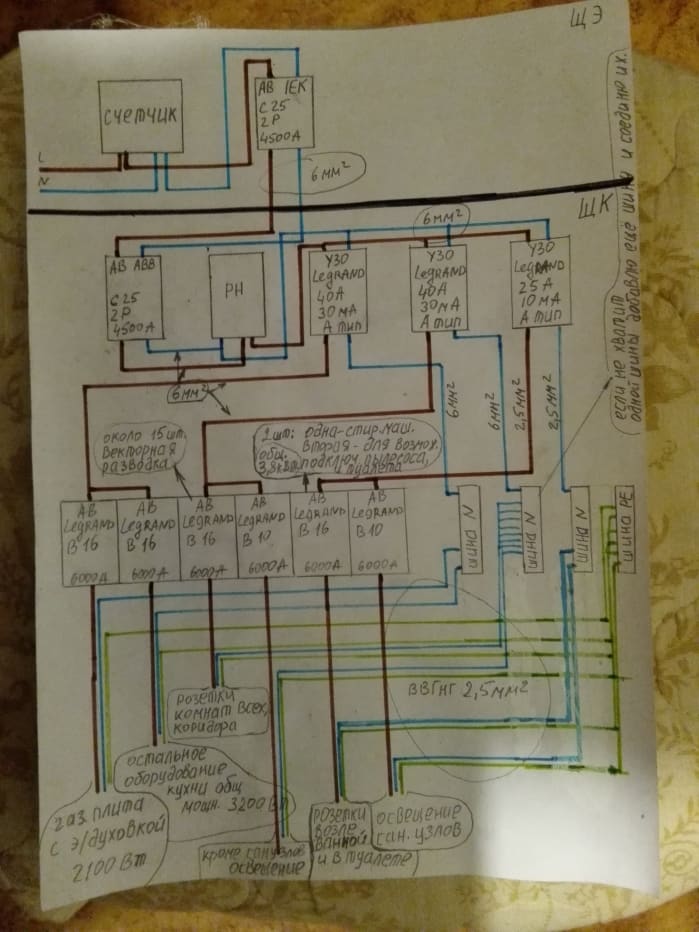 ЩЭ
АВ IEK
C25
2P
4500А
СЧЕТЧИК
L
N
6мм²
ЩК
если не хватит
одной шины добавлю ещё шину и соединю их.
АВ АВВ
C25
2P
4500А
РН
УЗО
LeGRAND
40А
30мА
А тип
6мм²
УЗО
LeGRAND
40А
30мА
А тип
УЗО
LeGRAND
25А
10мА
А тип
6мм²
6мм²
6мм²
2,5мм²
2,5мм²
около 15шт.
векторная
разводка
2шт: одна-стир.маш.
вторая-для возмож.
общ. подключ. пылесоса,
3,8кВт
и туалета
АВ
LeGRAND
B 16
6000А
АВ
LeGRAND
B 16
6000А
АВ
LeGRAND
B 16
6000А
АВ
LeGRAND
B 10
6000А
АВ
LeGRAND
B 16
6000А
АВ
LeGRAND
B 10
6000А
шина N
шина N
шина N
шина PE
ВВГнг 2,5мм²
розетки
комнат всех,
коридора
остальное
оборудование
кухни общ
мощн. 3200 Вт
газ. плита
с э/духовкой
2100 Вт
кроме сан.узлов
освещение
розетки
возле
ванной
и в туалете
освещение
сан. узлов